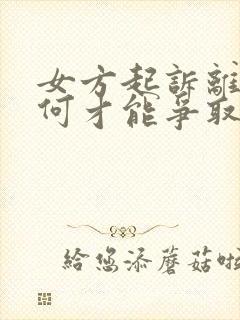 女方起訴離
何才能爭取
給您添蘑菇啦